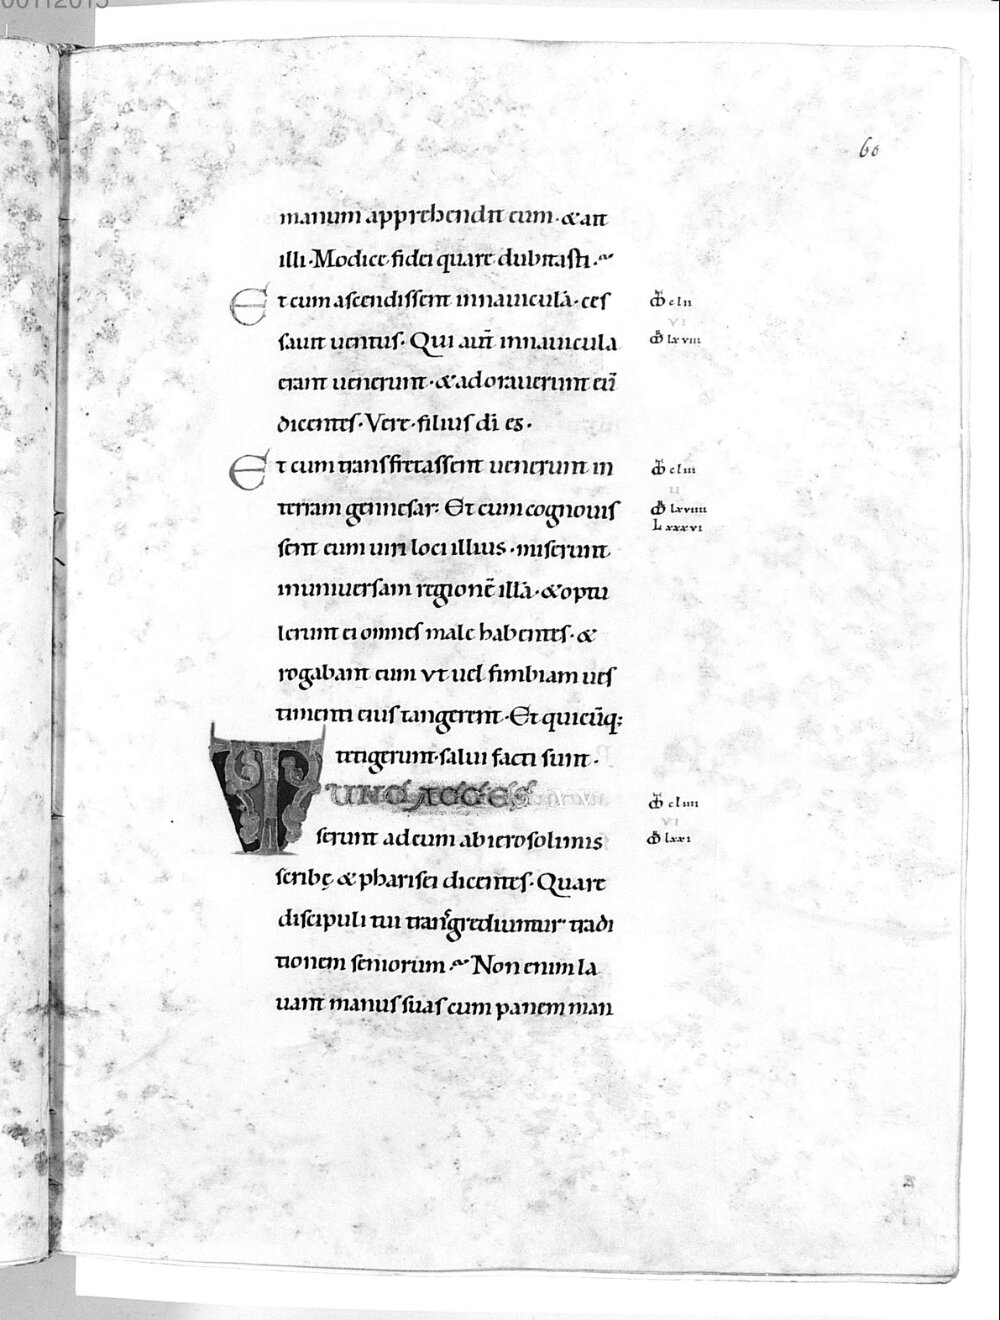 00112015
60
manum apprehendit eum · & ait
illi · Modice fidei quare dubitasti ·
Et cum ascendissent innauiculā · ces
sauit uentus · Qui autē innauicula
erant uenerunt · & adorauerunt eū
dicentes · Vere · filius dī es ·
Et cum transfretassent uenerunt in
terram gennesar : Et cum cognouis
sent eum uiri loci illius · miserunt
inuniuersam regionē illā · & optu
lerunt ei omnes male habentes · &
rogabant eum vt uel fimbriam ues
timenti eius tangerent · Et quicūq;
tetigerunt · salui facti sunt ·
TUNC ACCES
serunt ad eum abierosolimis
scribę & pharisei dicentes · Quare
discipuli tui transgrediuntur tradi
tionem seniorum · Non enim la
uant manus suas cum panem man
clii
lxviii
cliii
lxviiii
Lxxxvi
cliiii
lxxi